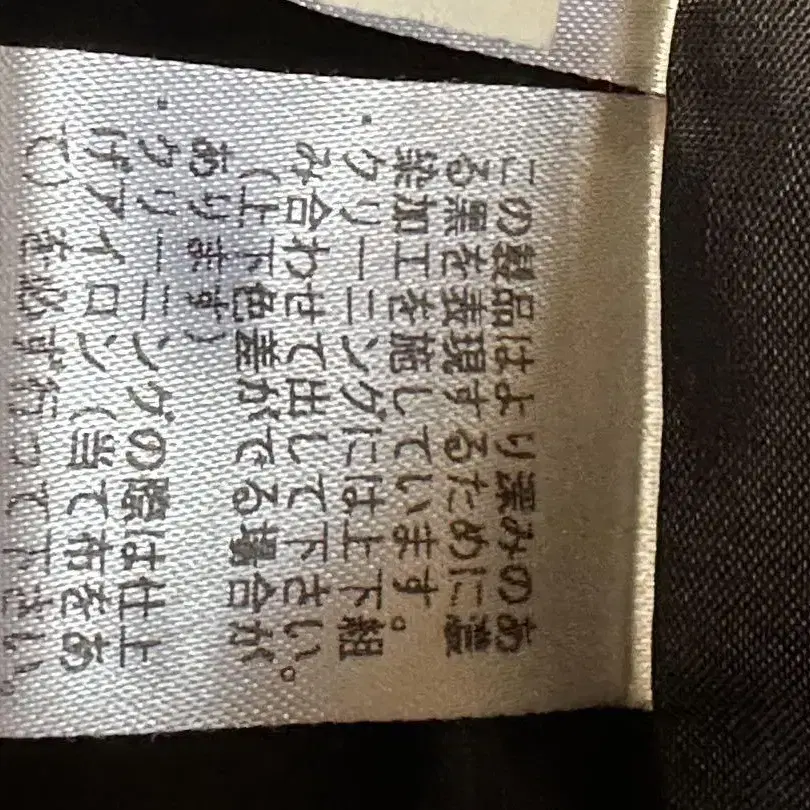 この製品はより深みのあ
る黒を表現するために濃
染加工を施しています。
・クリーニングには上下組
み合わせて出して下さい。
(上下色差がでる場合が
あります)
・クリーニングの際は仕上
げアイロン(当て布をあ
て)を必ず行って下さい。